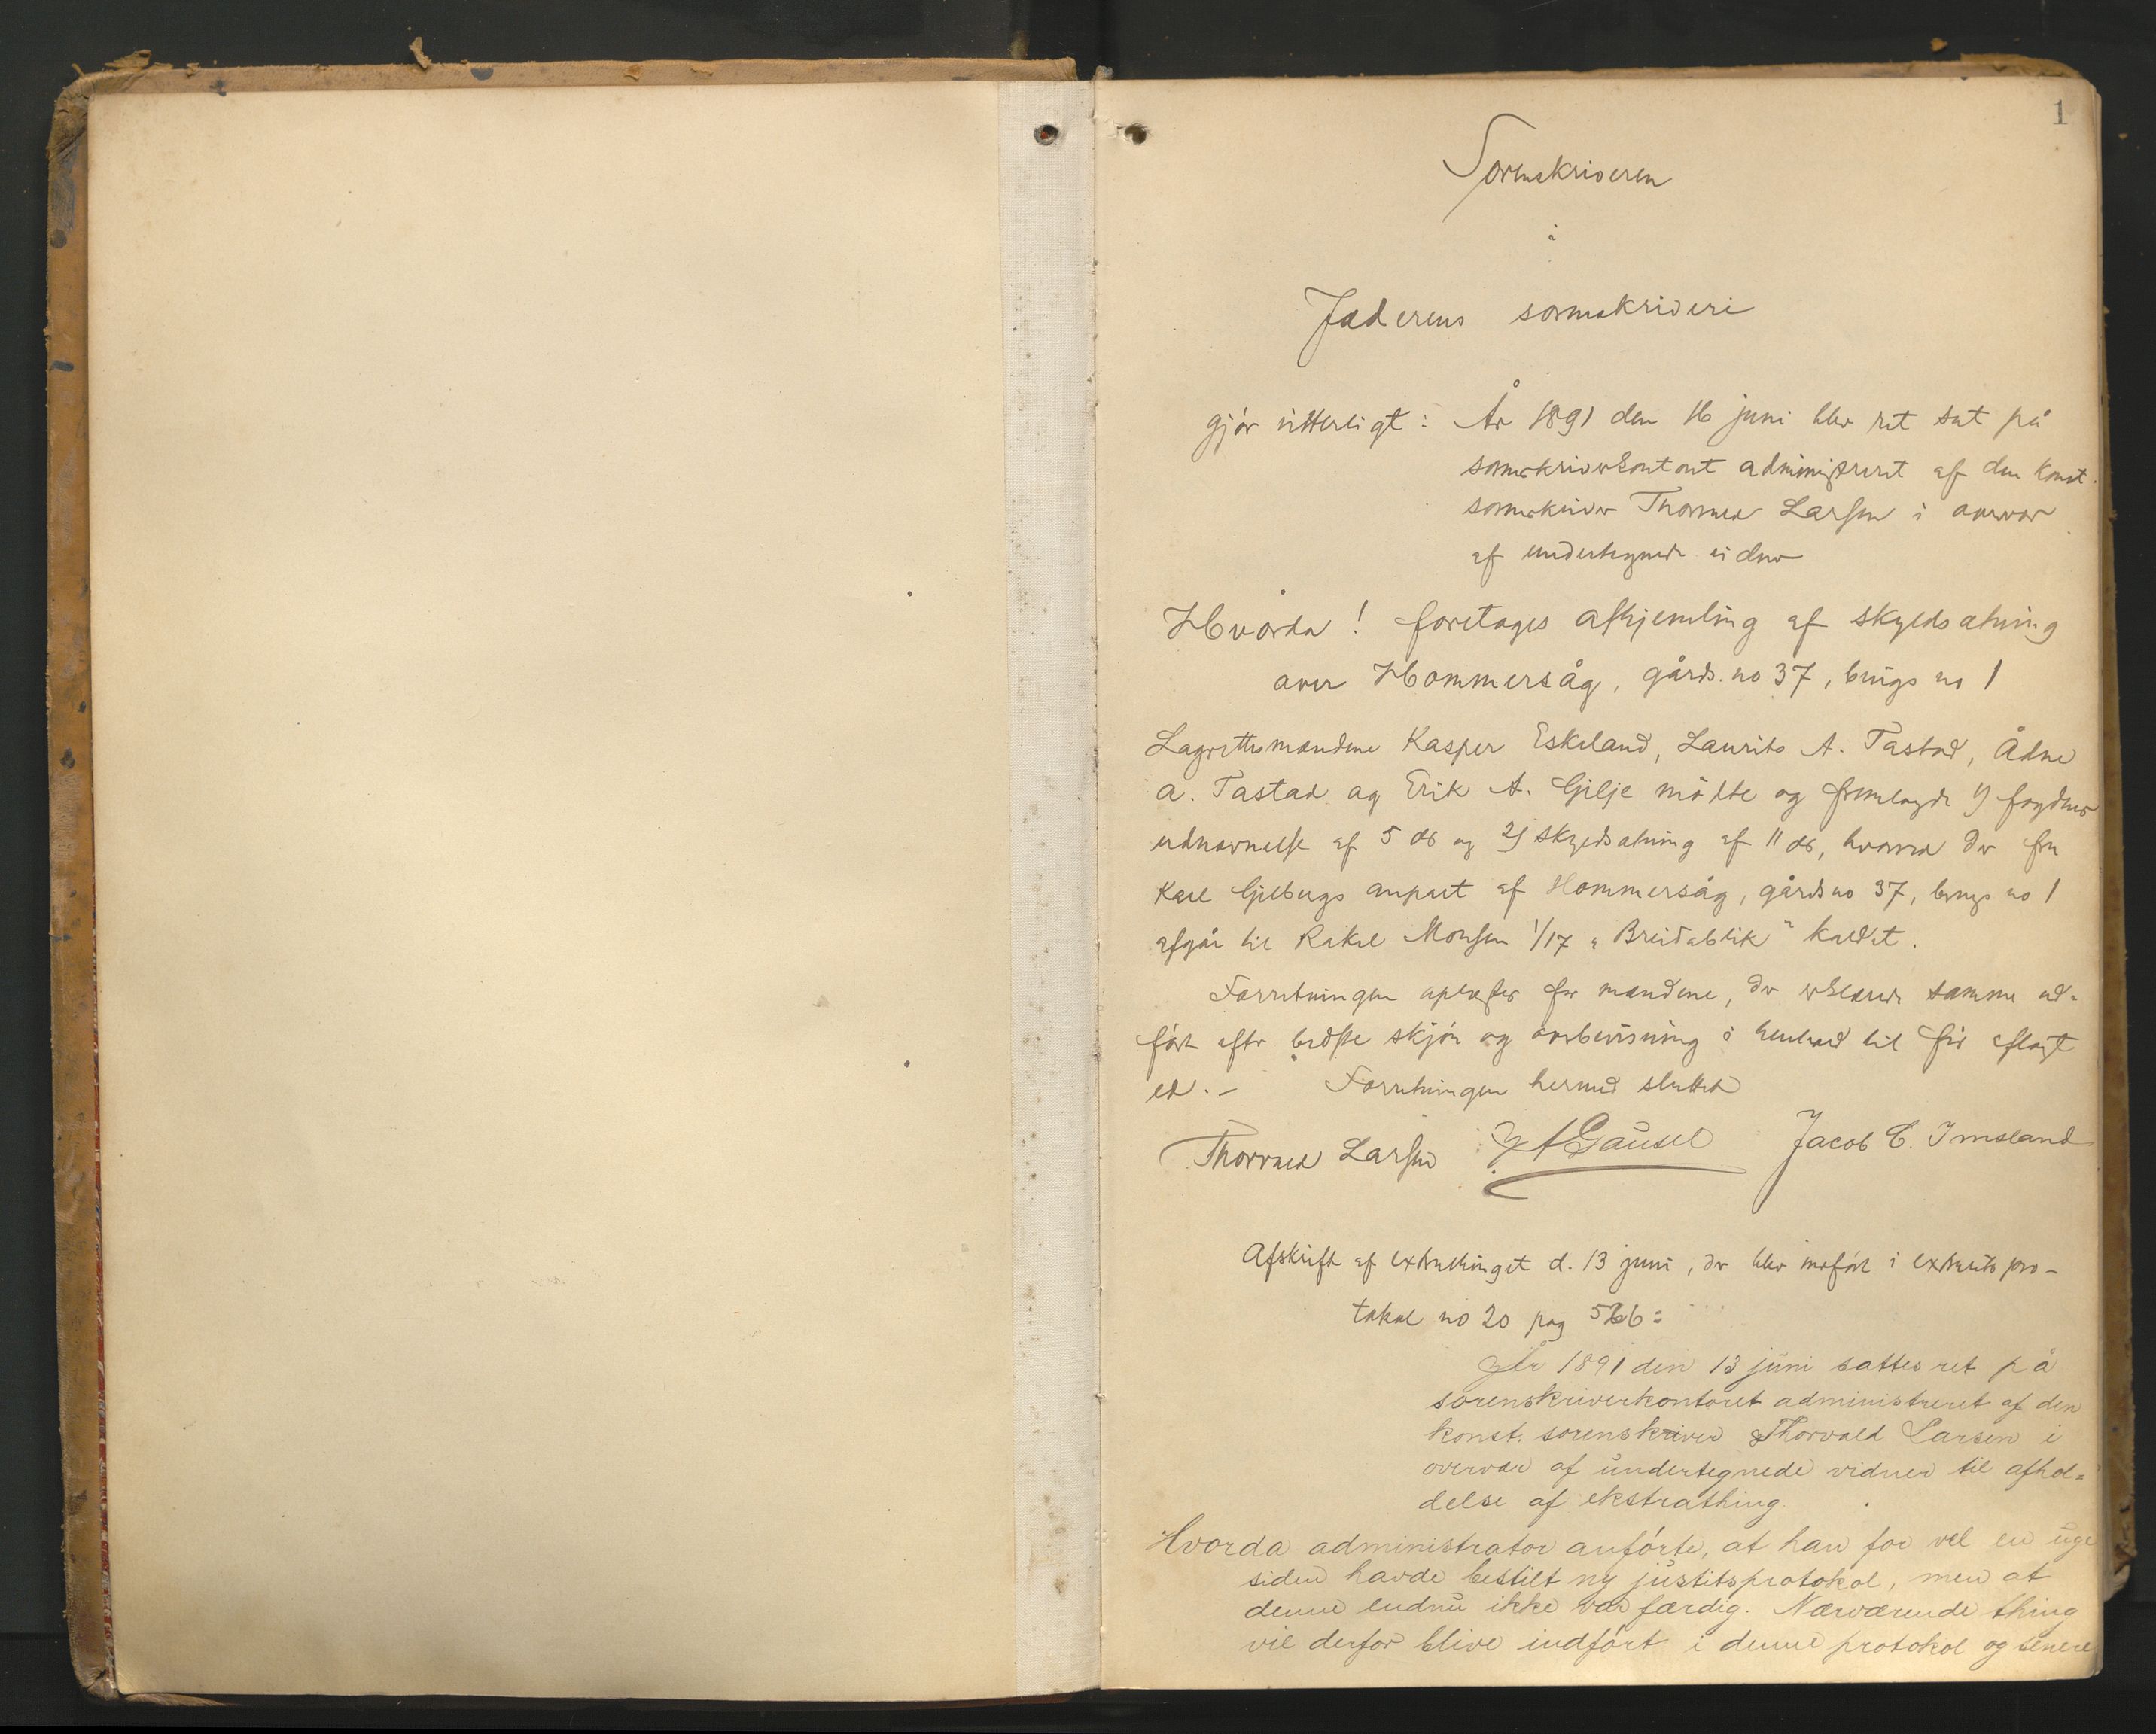 1
Sorenskriveren
i
Jæderens sorenskriveri
gjör vitterligt: År 1891 den 16 juni blev ret sat på
sorenskriverkontoret administreret af den konst.
sorenskriver Thorvald Larsen i overvær
af undertegnede vidner
Hvorda! foretages afhjemling af skyldsætning
over Hommersåg, gårds. no 37, brugs no 1
Lagrettesmændene Kasper Eskeland, Laurits A. Tastad, Ådne
A. Tastad og Erik A. Gilje mödte og fremlagde 1) fogdens
udnævnelse af 5 ds og 2) skyldsætning af 11 ds, hvorved der fra
Karl Gjilbergs anpart af Hommersåg, gårds no 37, brugs no 1
afgår til Rakel Monsen 1/17 „Breidablik" kaldet.
Forretningen oplæstes for mændene, der erklærede samme ud-
fört efter bedste skjön og overbevisning i henhold til för aflagt
ed. - Forretningen hermed sluttet
Thorvald Larsen A Gausel Jacob C. Imsland
Afskrift af extrathinget d. 13 juni, der blev indfört i extrarets pro-
tokol no 20 pag
År 1891 den 13 juni sattes ret på
sorenskriverkontoret administreret af den
konst. sorenskriver Thorvald Larsen i
overvær af undertegnede vidner til afhol-
delse af ekstrathing.
Hvorda administrator anförte, at han for vel en uge
siden havde bestilt ny justitsprotokol, men at
denne endnu ikke var færdig. Nærværende thing
vil derfor blive indfört i denne protokol og senere